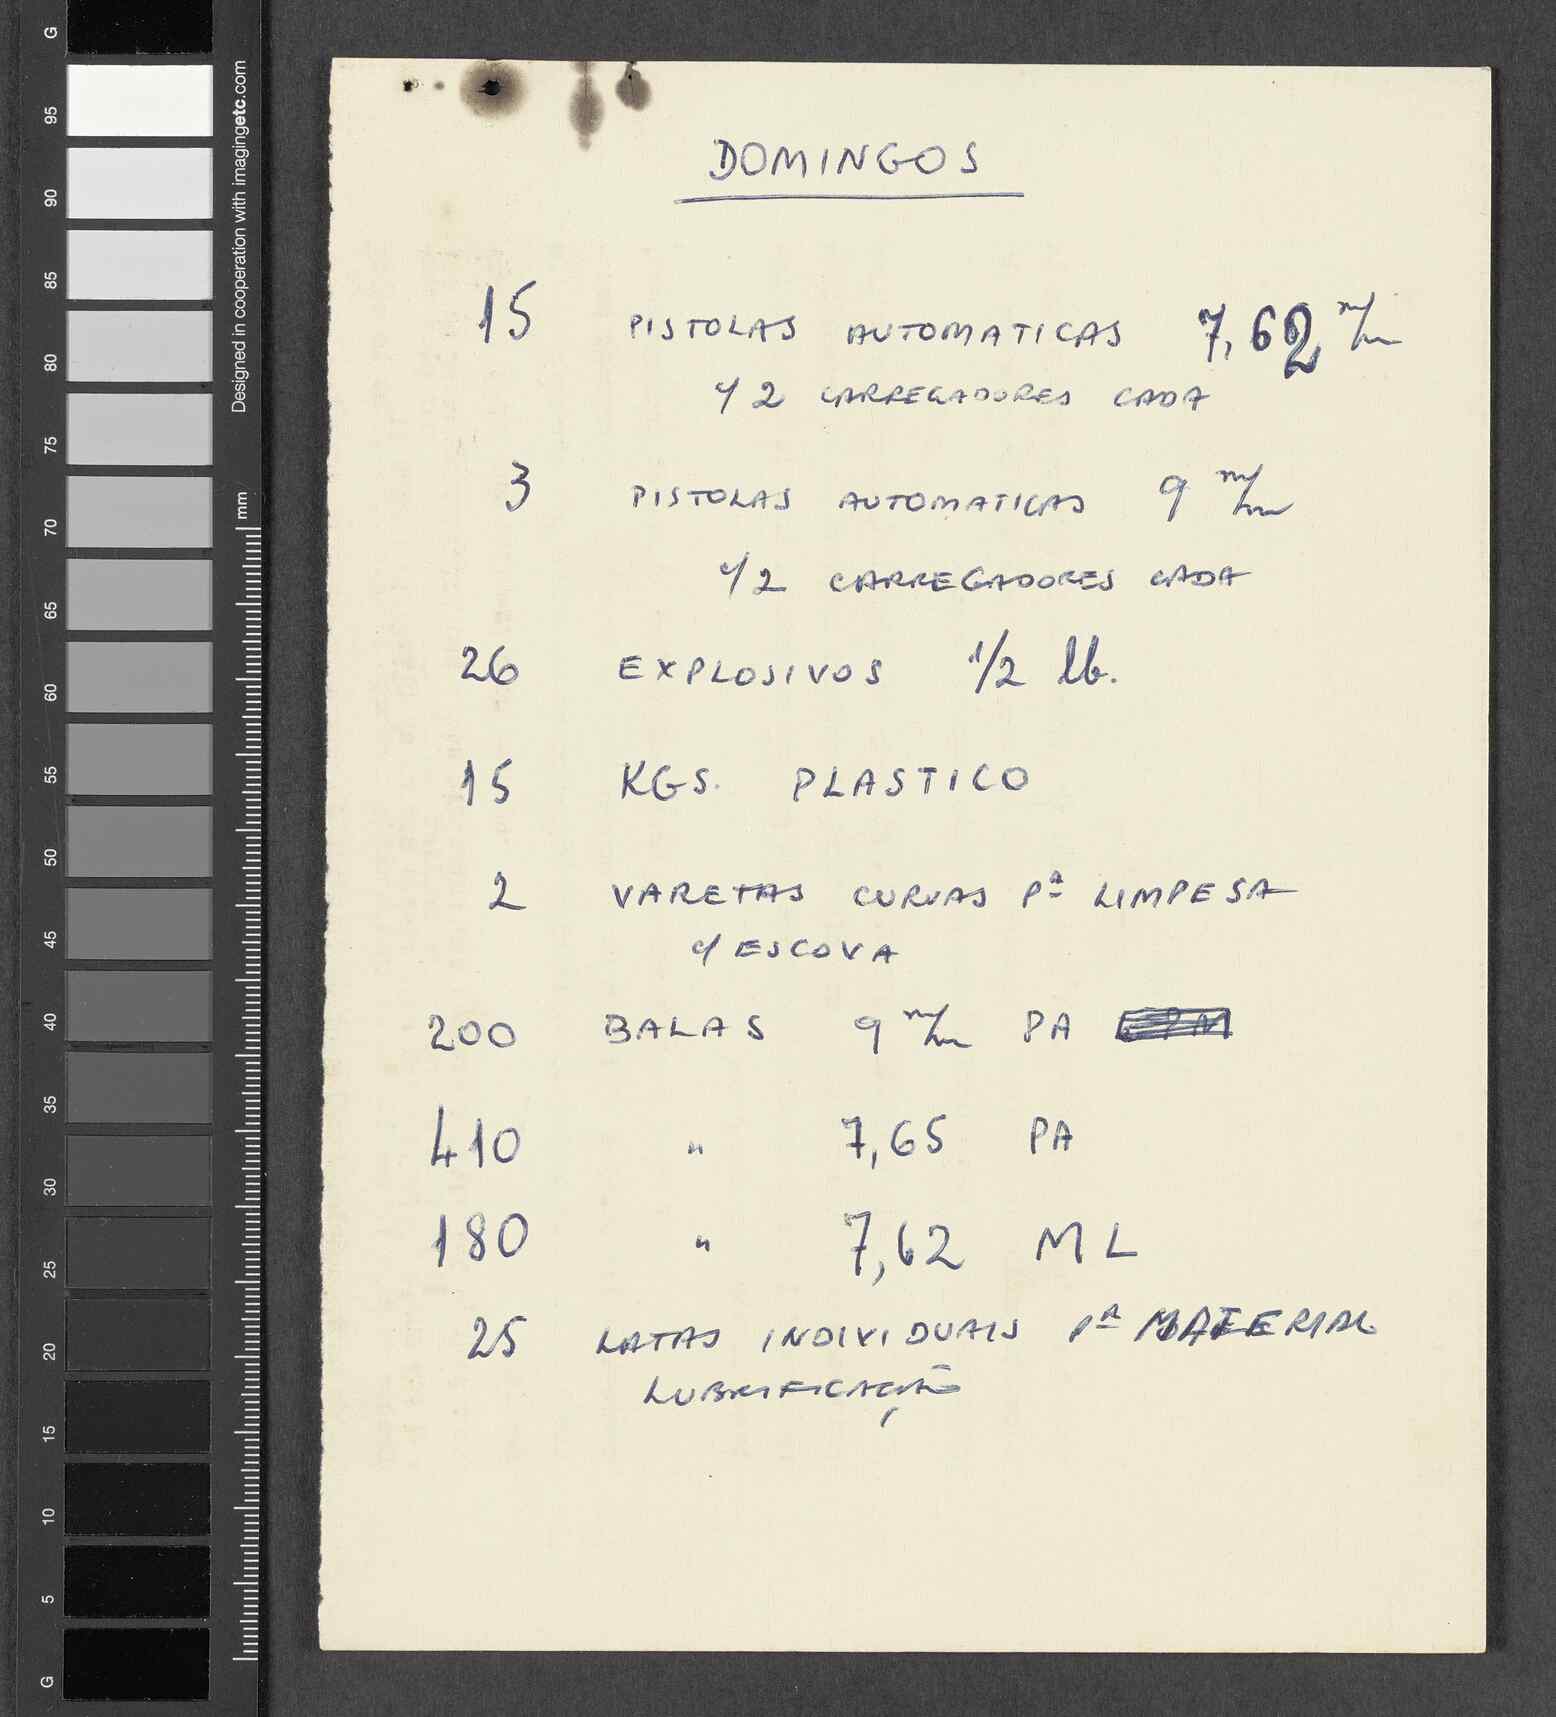 DOMINGOS
15 PISTOLAS AUTOMATICAS 7,62 m/m
c/ 2 CARREGADORES CADA
3 PISTOLAS AUTOMATICAS 9 m/m
c/ 2 CARREGADORES CADA
26 EXPLOSIVOS 1/2 lb.
15 KGS. PLASTICO
2 VARETAS CURVAS Pª LIMPESA
c/ ESCOVA
200 BALAS 9 m/m PA
410 " 7,65 PA
180 " 7,62 ML
25 LATAS INDIVIDUAIS Pª MATERIAL
LUBRIFICAÇÃO
G
95
90
85
80
75
70
65
60
55
50
45
40
35
30
25
20
15
10
5
G
Designed in cooperation with imagingetc.com
mm